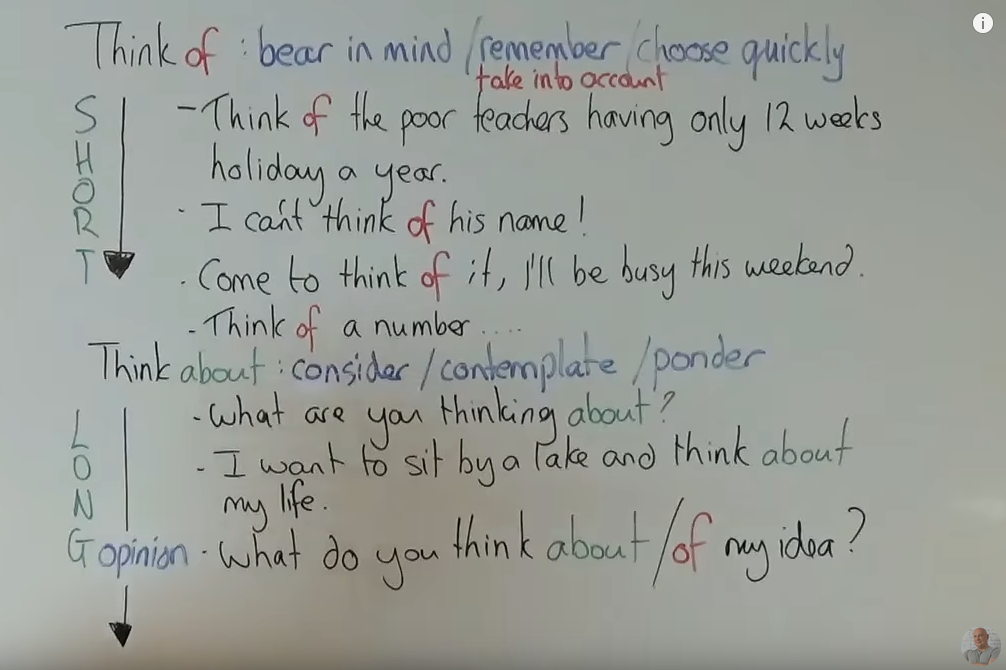 Think of : bear in mind /remember /choose quickly
take into account
SHORT
- Think of the poor teachers having only 12 weeks
holiday a year.
- I can't think of his name!
- Come to think of it, I'll be busy this weekend.
- Think of a number ....
Think about : consider /contemplate /ponder
LONG
- What are you thinking about?
- I want to sit by a lake and think about
my life.
opinion - What do you think about/of my idea?